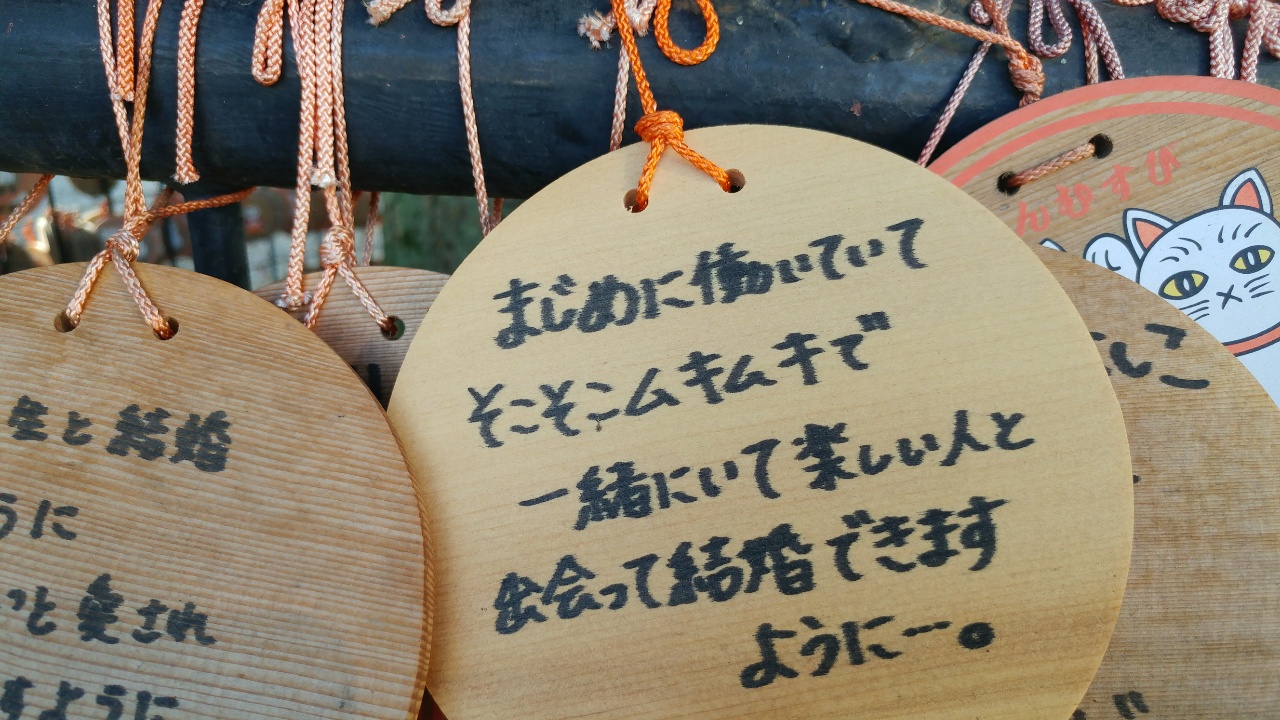 まじめに働いていて
そこそこムキムキで
一緒にいて楽しい人と
出会って結婚できます
ように…。
生と結婚
うに
っと愛され
すように
んむすび